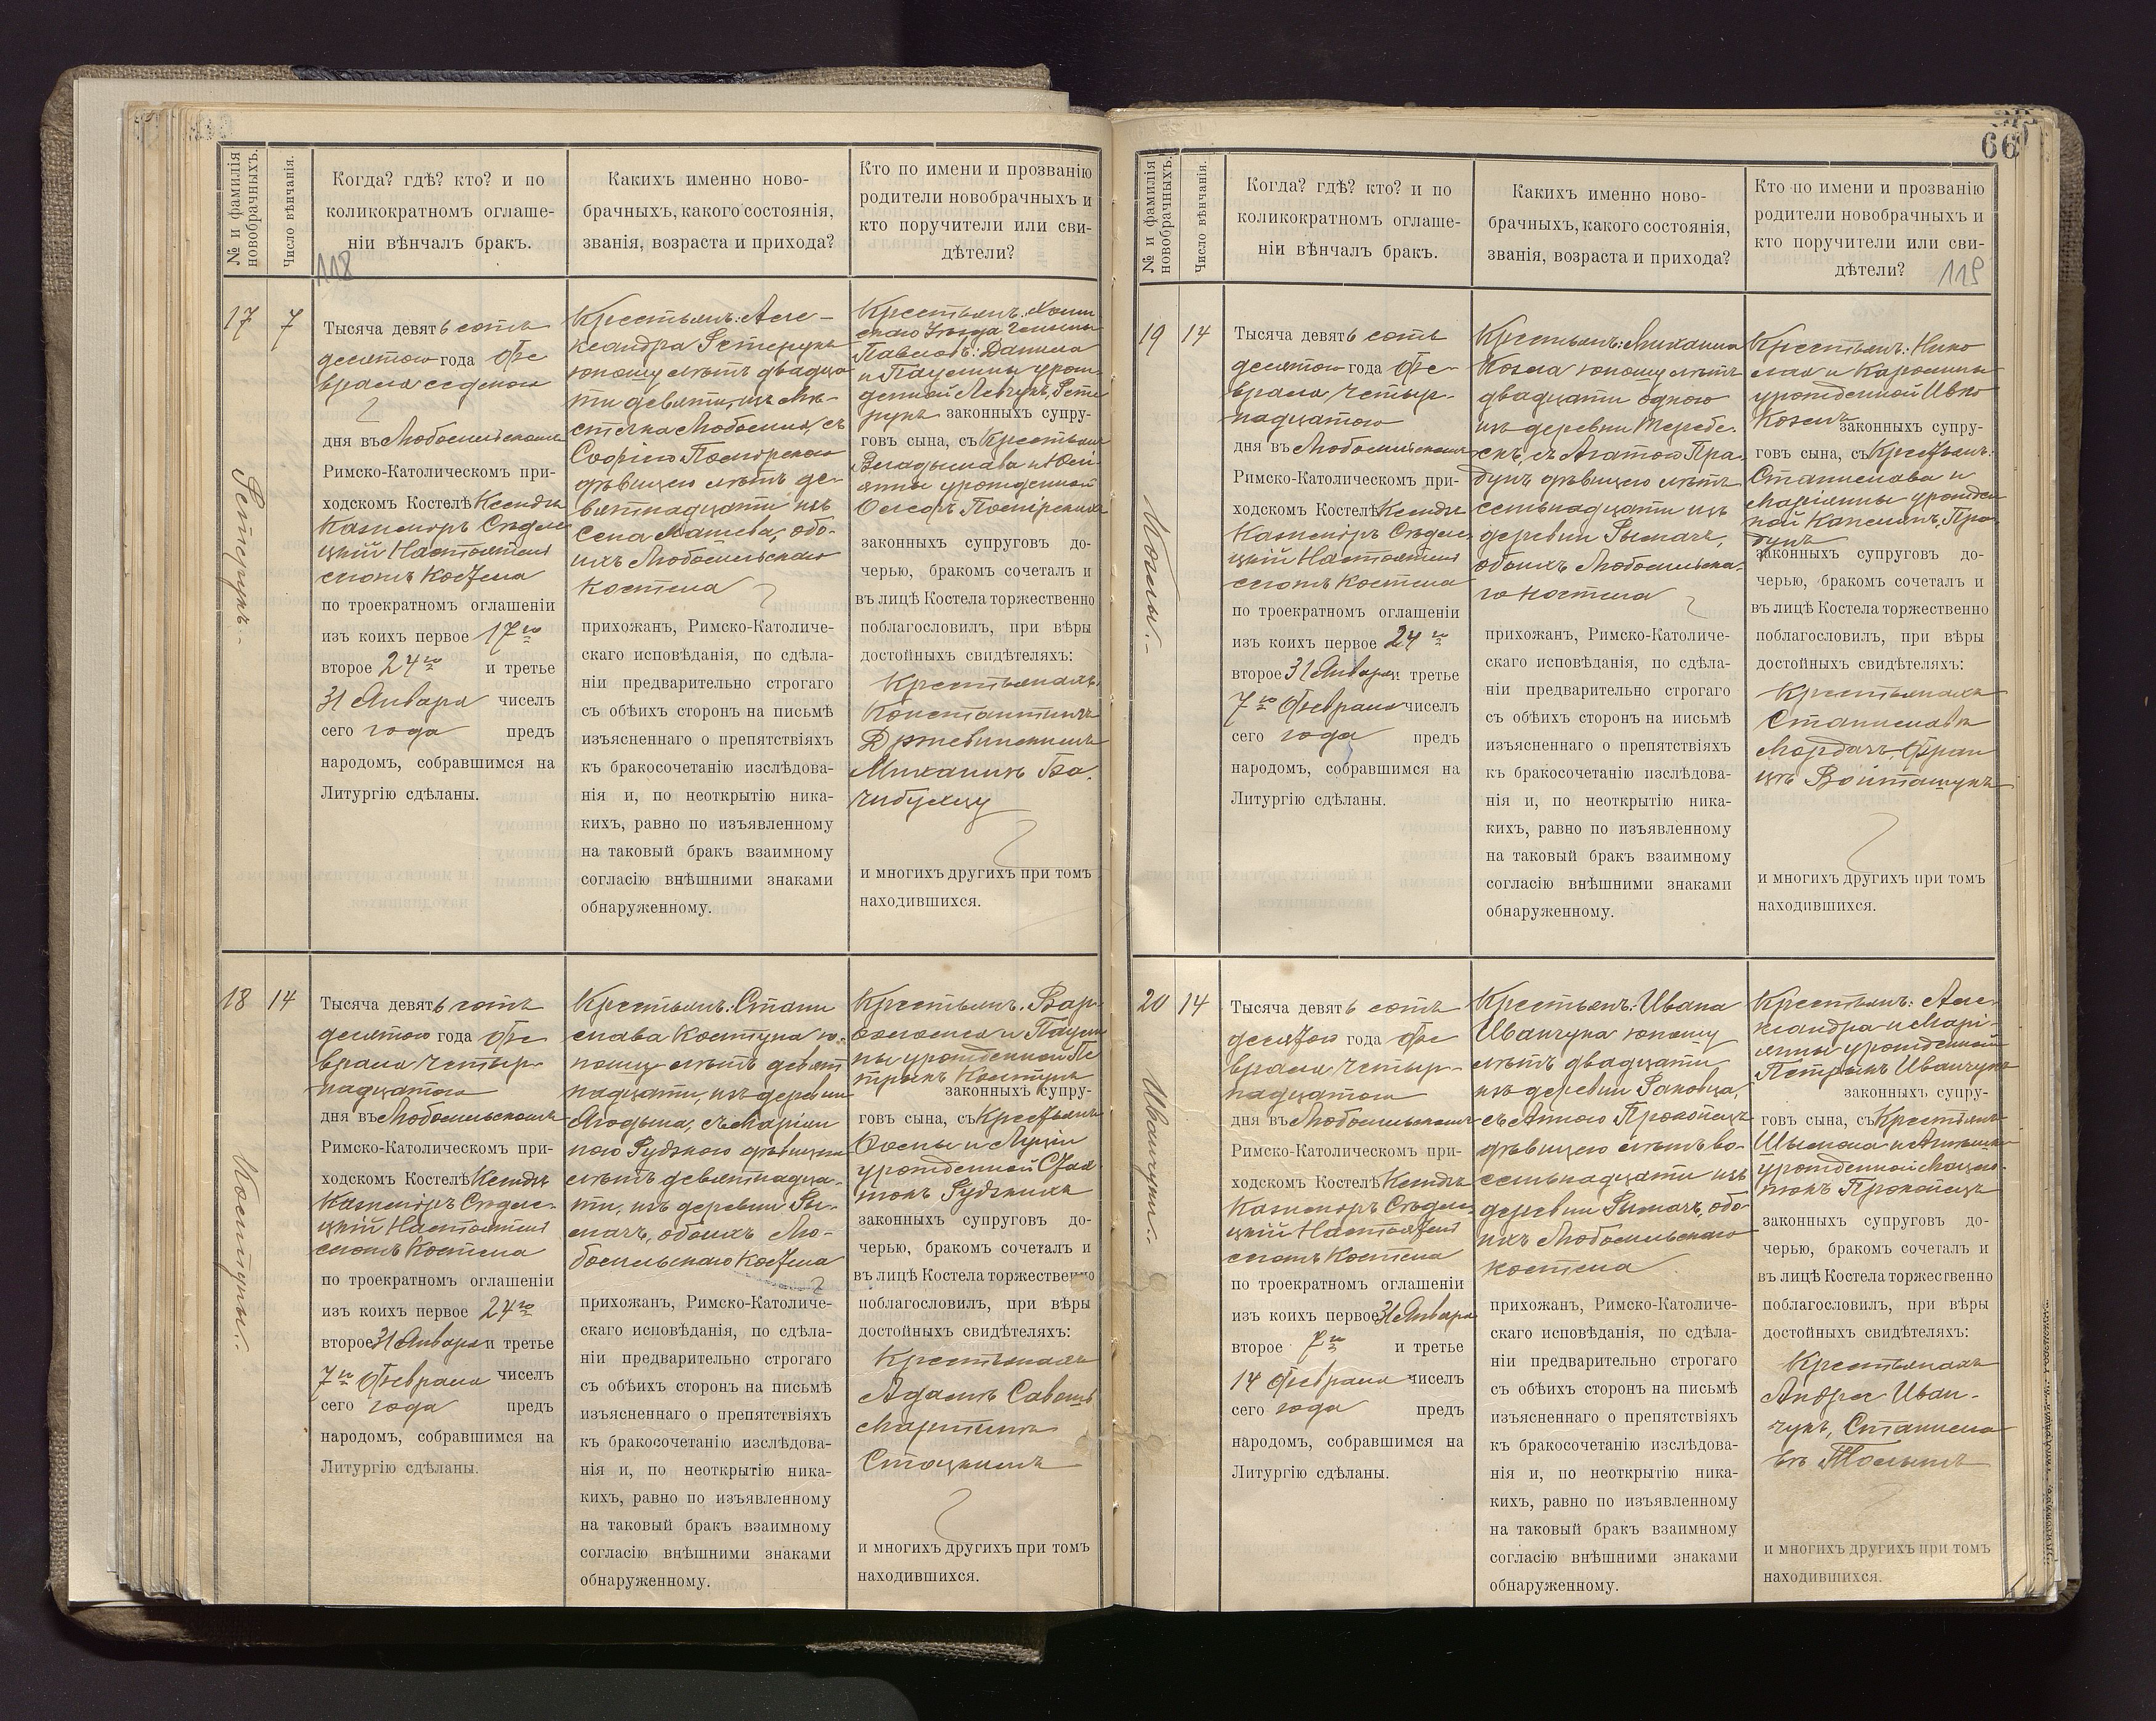 № и фамилія
новобрачныхъ.
Число вѣнчанія.
Когда? гдѣ? кто? и по
коликократномъ оглаше-
ніи вѣнчалъ бракъ.
Какихъ именно ново-
брачныхъ, какого состоянія,
званія, возраста и прихода?
Кто по имени и прозванію
родители новобрачныхъ и
кто поручители или сви-
дѣтели?
118
17
7
Тысяча девятьсотъ
десятого года Фе
враля седьмого
дня въ Любомльскомъ
Римско-Католическомъ при-
ходскомъ Костелѣ Ксендзъ
Казиміръ Сѣдле
цкій Настоятель
сего Костела
по троекратномъ оглашеніи
изъ коихъ первое 17го
второе 24го и третье
31 Января чиселъ
сего года предъ
народомъ, собравшимся на
Литургію сдѣланы.
Крестьянъ: Але-
ксандра
юношу лѣтъ двадца
ти девяти, изъ мѣ-
стечка Любомля, съ
Софіею
дѣвицею лѣтъ де-
вятнадцати изъ
села Машева, обо-
ихъ Любомльскаго
Костела
прихожанъ, Римско-Католиче-
скаго исповѣданія, по сдѣла-
ніи предварительно строгаго
съ обѣихъ сторонъ на письмѣ
изъясненнаго о препятствіяхъ
къ бракосочетанію изслѣдова-
нія и, по неоткрытію ника-
кихъ, равно по изъявленному
на таковый бракъ взаимному
согласію внѣшними знаками
обнаруженному.
Крестьянъ Холм
скаго Уѣзда Гмины
Павловъ: Данила
и Паулины урож-
денной
законныхъ супру-
говъ сына, съ Крестьянъ
Владыслава и Юлі-
янны урожденной
законныхъ супруговъ до-
черью, бракомъ сочеталъ и
въ лицѣ Костела торжественно
поблагословилъ, при вѣры
достойныхъ свидѣтеляхъ:
Крестьянахъ
Константинъ
Михаилъ
и многихъ другихъ при томъ
находившихся.
18
14
Костуны.
Тысяча девятьсотъ
десятого года Фе
враля четыр-
надцатого
дня въ Любомльскомъ
Римско-Католическомъ при-
ходскомъ Костелѣ Ксендзъ
Казиміръ Сѣдле-
цкій Настоятель
сего Костела
по троекратномъ оглашеніи
изъ коихъ первое 24го
второе 31 Января и третье
7го Февраля чиселъ
сего года предъ
народомъ, собравшимся на
Литургію сдѣланы.
Крестьянъ: Стани
слава Костуна ю-
ношу лѣтъ девят
надцати, изъ деревни
Ягодына, съ Маріян
ною Рудзкою дѣвицею
лѣтъ девятнадца-
ти, изъ деревни Ры-
мачъ, обоихъ Лю-
бомльскаго Костела
прихожанъ, Римско-Католиче-
скаго исповѣданія, по сдѣла-
ніи предварительно строгаго
съ обѣихъ сторонъ на письмѣ
изъясненнаго о препятствіяхъ
къ бракосочетанію изслѣдова-
нія и, по неоткрытію ника-
кихъ, равно по изъявленному
на таковый бракъ взаимному
согласію внѣшними знаками
обнаруженному.
Крестьянъ: Вар-
ѳоломея и Паули
ны урожденной Пе
трыкъ Костунъ
законныхъ супру-
говъ сына, съ Крестьянъ
и Луціи
урожденной
Рудзкихъ
законныхъ супруговъ до-
черью, бракомъ сочеталъ и
въ лицѣ Костела торжественно
поблагословилъ, при вѣры
достойныхъ свидѣтеляхъ:
Крестьянахъ
Адамъ
Мартинъ
и многихъ другихъ при томъ
находившихся.
66
№ и фамилія
новобрачныхъ.
Число вѣнчанія.
Когда? гдѣ? кто? и по
коликократномъ оглаше-
ніи вѣнчалъ бракъ.
Какихъ именно ново-
брачныхъ, какого состоянія,
званія, возраста и прихода?
Кто по имени и прозванію
родители новобрачныхъ и
кто поручители или сви-
дѣтели?
119
19
14
Козелы.
Тысяча девятьсотъ
десятого года Фе-
враля четыр-
надцатого
дня въ Любомльскомъ
Римско-Католическомъ при-
ходскомъ Костелѣ Ксендзъ
Казиміръ Сѣдле
цкій Настоятель
сего Костела
по троекратномъ оглашеніи
изъ коихъ первое 24го
второе 31 Января и третье
7го Февраля чиселъ
сего года предъ
народомъ, собравшимся на
Литургію сдѣланы.
Крестьянъ: Михаила
Козла юношу лѣтъ
двадцати одного
изъ деревни
съ Агатою Пра-
дунъ дѣвицею лѣтъ
семьнадцати изъ
деревни Рымачъ,
обоихъ Любомльска-
го Костела
прихожанъ, Римско-Католиче-
скаго исповѣданія, по сдѣла-
ніи предварительно строгаго
съ обѣихъ сторонъ на письмѣ
изъясненнаго о препятствіяхъ
къ бракосочетанію изслѣдова-
нія и, по неоткрытію ника-
кихъ, равно по изъявленному
на таковый бракъ взаимному
согласію внѣшними знаками
обнаруженному.
Крестьянъ: Нико
лая и Каролины
урожденной
законныхъ супру-
говъ сына, съ Крестьянъ:
Станислава и
Маріянны урожден
ной
законныхъ супруговъ до-
черью, бракомъ сочеталъ и
въ лицѣ Костела торжественно
поблагословилъ, при вѣры
достойныхъ свидѣтеляхъ:
Крестьянахъ
Станиславъ
Мордачъ, Фран
цъ Войташукъ
и многихъ другихъ при томъ
находившихся.
20
14
Иванчуки.
Тысяча девятьсотъ
десятого года Фе
враля четыр-
надцатого
дня въ Любомльскомъ
Римско-Католическомъ при-
ходскомъ Костелѣ Ксендзъ
Казиміръ Сѣдле
цкій Настоятель
сего Костела
по троекратномъ оглашеніи
изъ коихъ первое 31 Января
второе 7го и третье
14 Февраля чиселъ
сего года предъ
народомъ, собравшимся на
Литургію сдѣланы.
Крестьянъ: Ивана
Иванчука юношу
лѣтъ двадцати
изъ деревни Раковца,
съ Анною Прокопецъ
дѣвицею лѣтъ во-
семьнадцати изъ
деревни Рымачъ, обо-
ихъ Любомльскаго
Костела
прихожанъ, Римско-Католиче-
скаго исповѣданія, по сдѣла-
ніи предварительно строгаго
съ обѣихъ сторонъ на письмѣ
изъясненнаго о препятствіяхъ
къ бракосочетанію изслѣдова-
нія и, по неоткрытію ника-
кихъ, равно по изъявленному
на таковый бракъ взаимному
согласію внѣшними знаками
обнаруженному.
Крестьянъ: Але-
ксандра и Марі-
янны урожденной
Петрыкъ Иванчукъ
законныхъ супру-
говъ сына, съ Крестьянъ
Шымона и
урожденной
Прокопецъ
законныхъ супруговъ до-
черью, бракомъ сочеталъ и
въ лицѣ Костела торжественно
поблагословилъ, при вѣры
достойныхъ свидѣтеляхъ:
Крестьянахъ
Андрей Иван-
чукъ, Станисла
въ
и многихъ другихъ при томъ
находившихся.